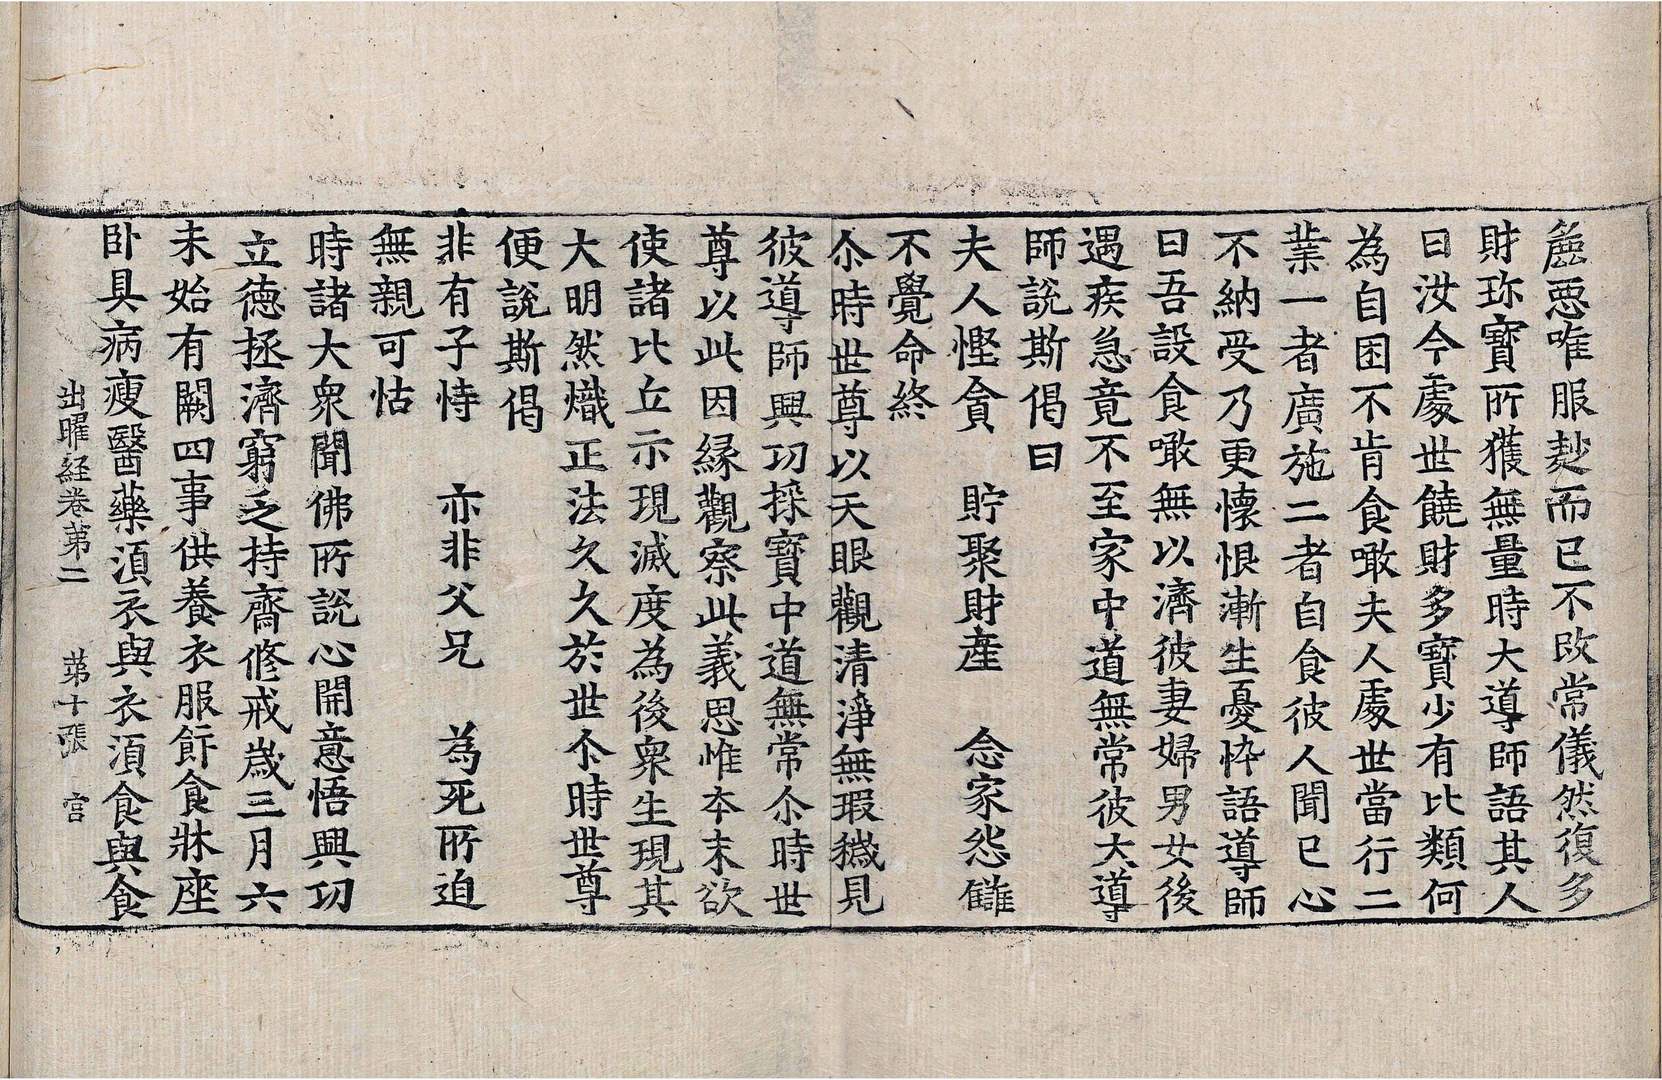 麁惡唯服麨而已不改常儀然復多
財珎寳所獲無量時大導師語其人
曰汝今處世饒財多寳少有比類何
為自困不肯食噉夫人處世當行二
業一者廣施二者自食彼人聞已心
不納受乃更懷恨漸生憂忰語導師
曰吾設食噉無以濟彼妻婦男女後
遇疾急竟不至家中道無常彼大導
師說斯偈曰
夫人慳貪　貯聚財産　念家怨讎
不覺命終
尒時世尊以天眼觀清淨無瑕穢見
彼導師興功採寳中道無常尒時世
尊以此因縁觀察此義思惟夲末欲
使諸比丘示現滅度為後衆生現其
大明然熾正法久久於世尒時世尊
便說斯偈
非有子恃　亦非父兄　為死所迫
無親可怙
時諸大衆聞佛所說心開意悟興功
立德拯濟窮乏持齋修戒歲三月六
未始有闕四事供養衣服飰食牀座
卧具病瘦醫藥湏衣與衣湏食與食
出曜経卷第二　第十張　宫